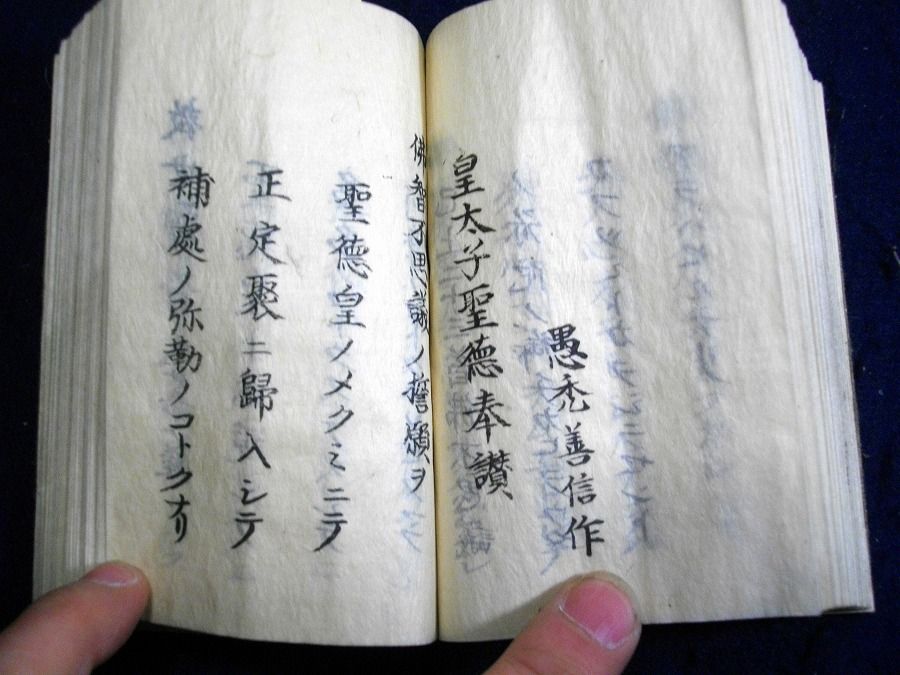 愚禿善信作
皇太子聖德奉讃
佛智不思議ノ誓願ヲ
聖德皇ノメクミニテ
正定聚ニ歸入シテ
補處ノ弥勒ノコトクナリ